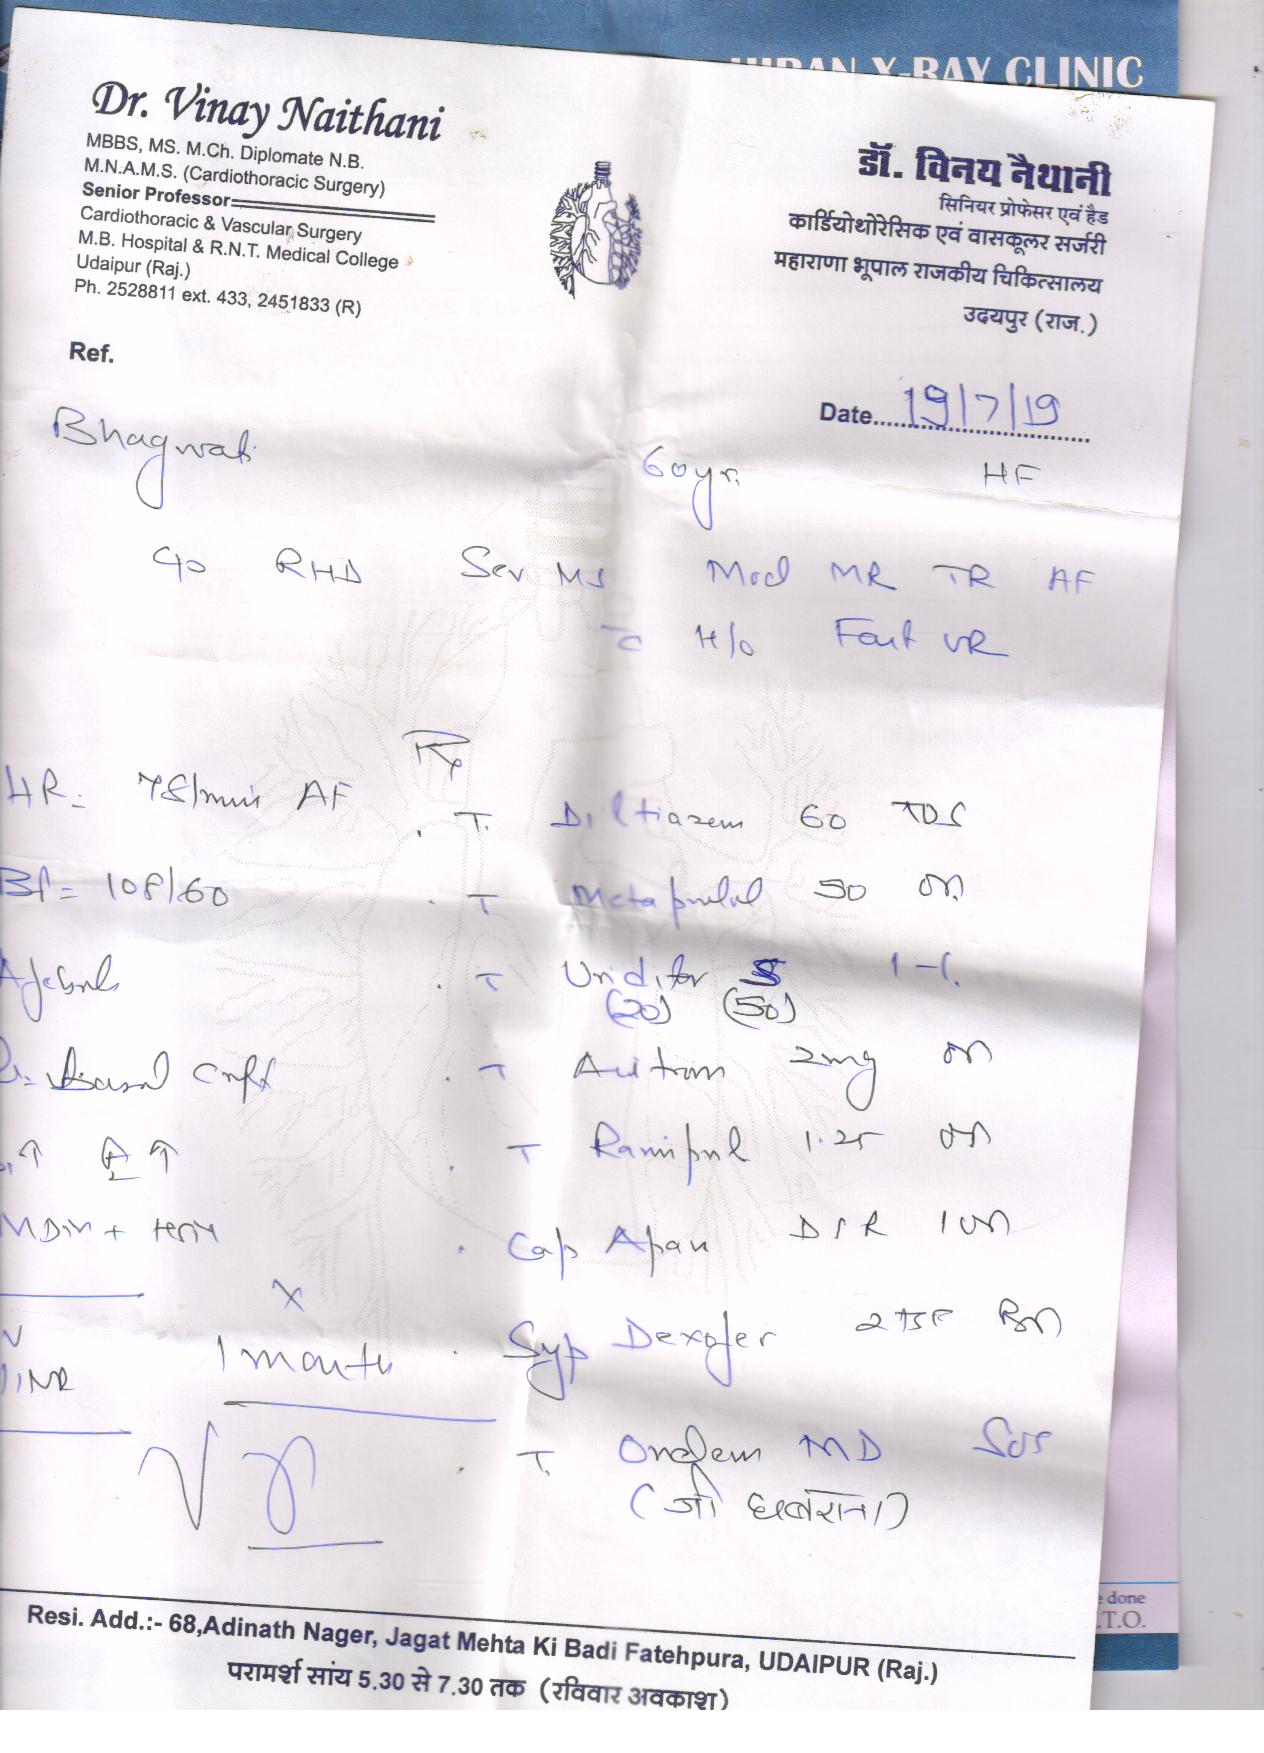 HIRAN X-RAY CLINIC
Dr. Vinay Naithani
MBBS, MS. M.Ch. Diplomate N.B.
M.N.A.M.S. (Cardiothoracic Surgery)
Senior Professor
Cardiothoracic & Vascular Surgery
M.B. Hospital & R.N.T. Medical College
Udaipur (Raj.)
Ph. 2528811 ext. 433, 2451833 (R)
डॉ. विनय नैथानी
सिनियर प्रोफेसर एवं हैड
कार्डियोथोरेसिक एवं वासकूलर सर्जरी
महाराणा भूपाल राजकीय चिकित्सालय
उदयपुर (राज.)
Ref.
Date 19/7/19
Bhagwati 60yr. HF
c/o RHD Sev MS Mod MR TR AF
H/o Fast VR
HR= 78/min AF
BP= 108/60
Rx
T. Diltiazem 60 TDS
T 50 OD
T (20) (50) 1-1
T 2mg OD
T Ramipril 1.25 OD
Cap DSR 1 OD
Syp Dexofer 2 TSF BD
T. Ondem MD SOS
(जी घबराना)
MDM + HTN
INR
x
1 month
Resi. Add.:- 68,Adinath Nager, Jagat Mehta Ki Badi Fatehpura, UDAIPUR (Raj.)
परामर्श सांय 5.30 से 7.30 तक (रविवार अवकाश)
done
.T.O.